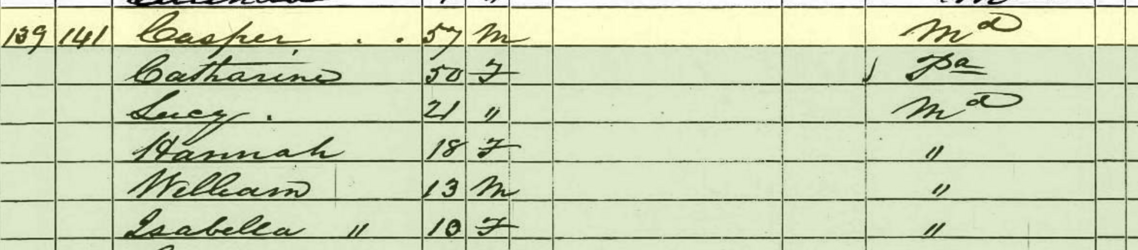 139 141 Casper, . . 57 M Md
Catharine 50 F Pa
Lucy . 21 " Md
Hannah 18 F "
William 13 M "
Isabella " 10 F "